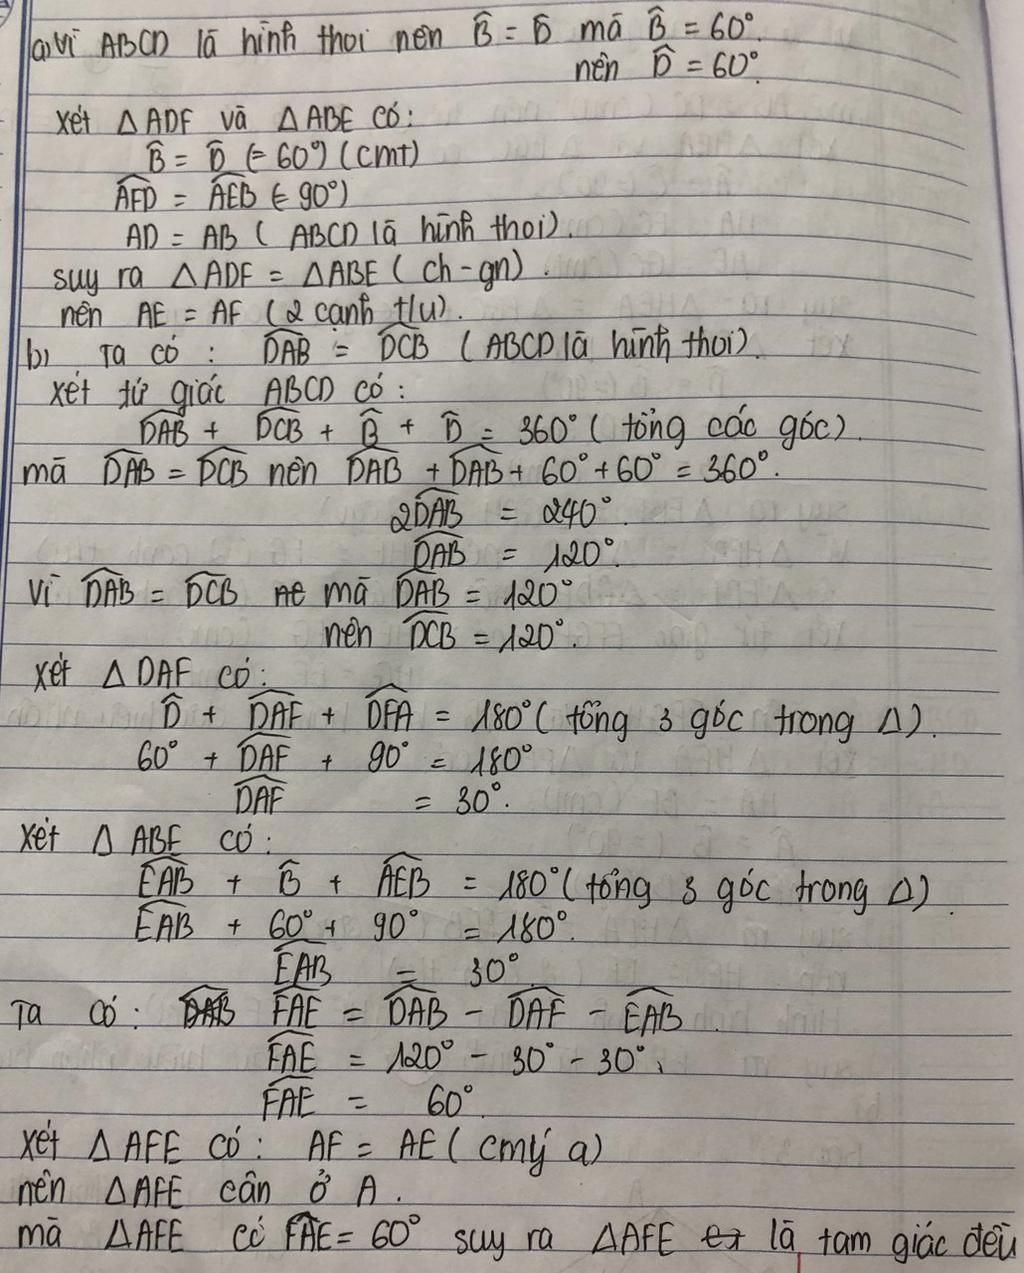 a) Vì ABCD là hình thoi nên B̂ = D̂ mà B̂ = 60°.
nên D̂ = 60°.
Xét △ADF và △ABE có:
B̂ = D̂ (= 60°) (cmt)
AFD = AEB (= 90°)
AD = AB ( ABCD là hình thoi).
suy ra △ADF = △ABE ( ch - gn) .
nên AE = AF ( 2 cạnh t/ư).
b) Ta có : DAB = DCB ( ABCD là hình thoi).
Xét tứ giác ABCD có:
DAB + DCB + B̂ + D̂ = 360° ( tổng các góc).
mà DAB = DCB nên DAB + DAB + 60° + 60° = 360°.
2DAB = 240°.
DAB = 120°.
Vì DAB = DCB mà DAB = 120°
nên DCB = 120°.
Xét △DAF có:
D̂ + DAF + DFA = 180° ( tổng 3 góc trong △).
60° + DAF + 90° = 180°
DAF = 30°.
Xét △ ABE có:
EAB + B̂ + AEB = 180° ( tổng 3 góc trong △).
EAB + 60° + 90° = 180°.
EAB = 30°
Ta có: DAB FAE = DAB - DAF - EAB.
FAE = 120° - 30° - 30°.
FAE = 60°.
Xét △AFE có: AF = AE ( cm ý a)
nên △AFE cân ở A.
mà △AFE có FAE = 60° suy ra △AFE là tam giác đều